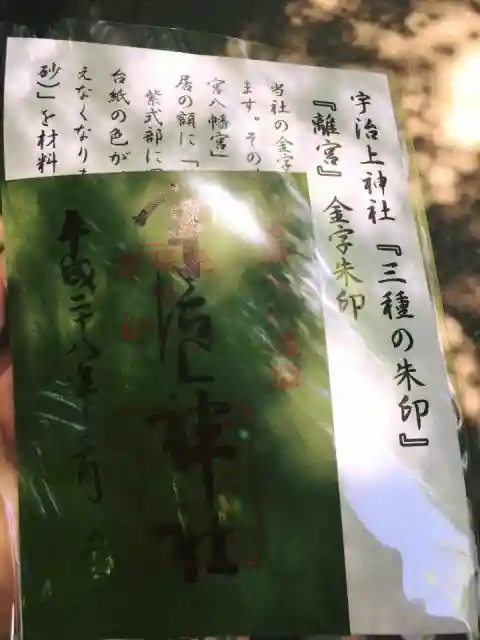 宇治上神社『三種の朱印』
『離宮』金字朱印
当社の金字
ます。その
宮八幡宮」
居の額に「
紫式部に
台紙の色が
えなくなりま
砂)」を材料
宇治上神社
平成二十八年十二月